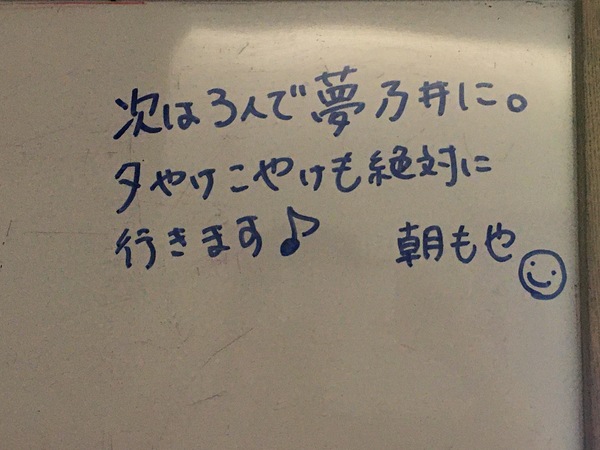 次は3人で夢乃井に。
夕やけこやけも絶対に
行きます♪ 朝もや☺